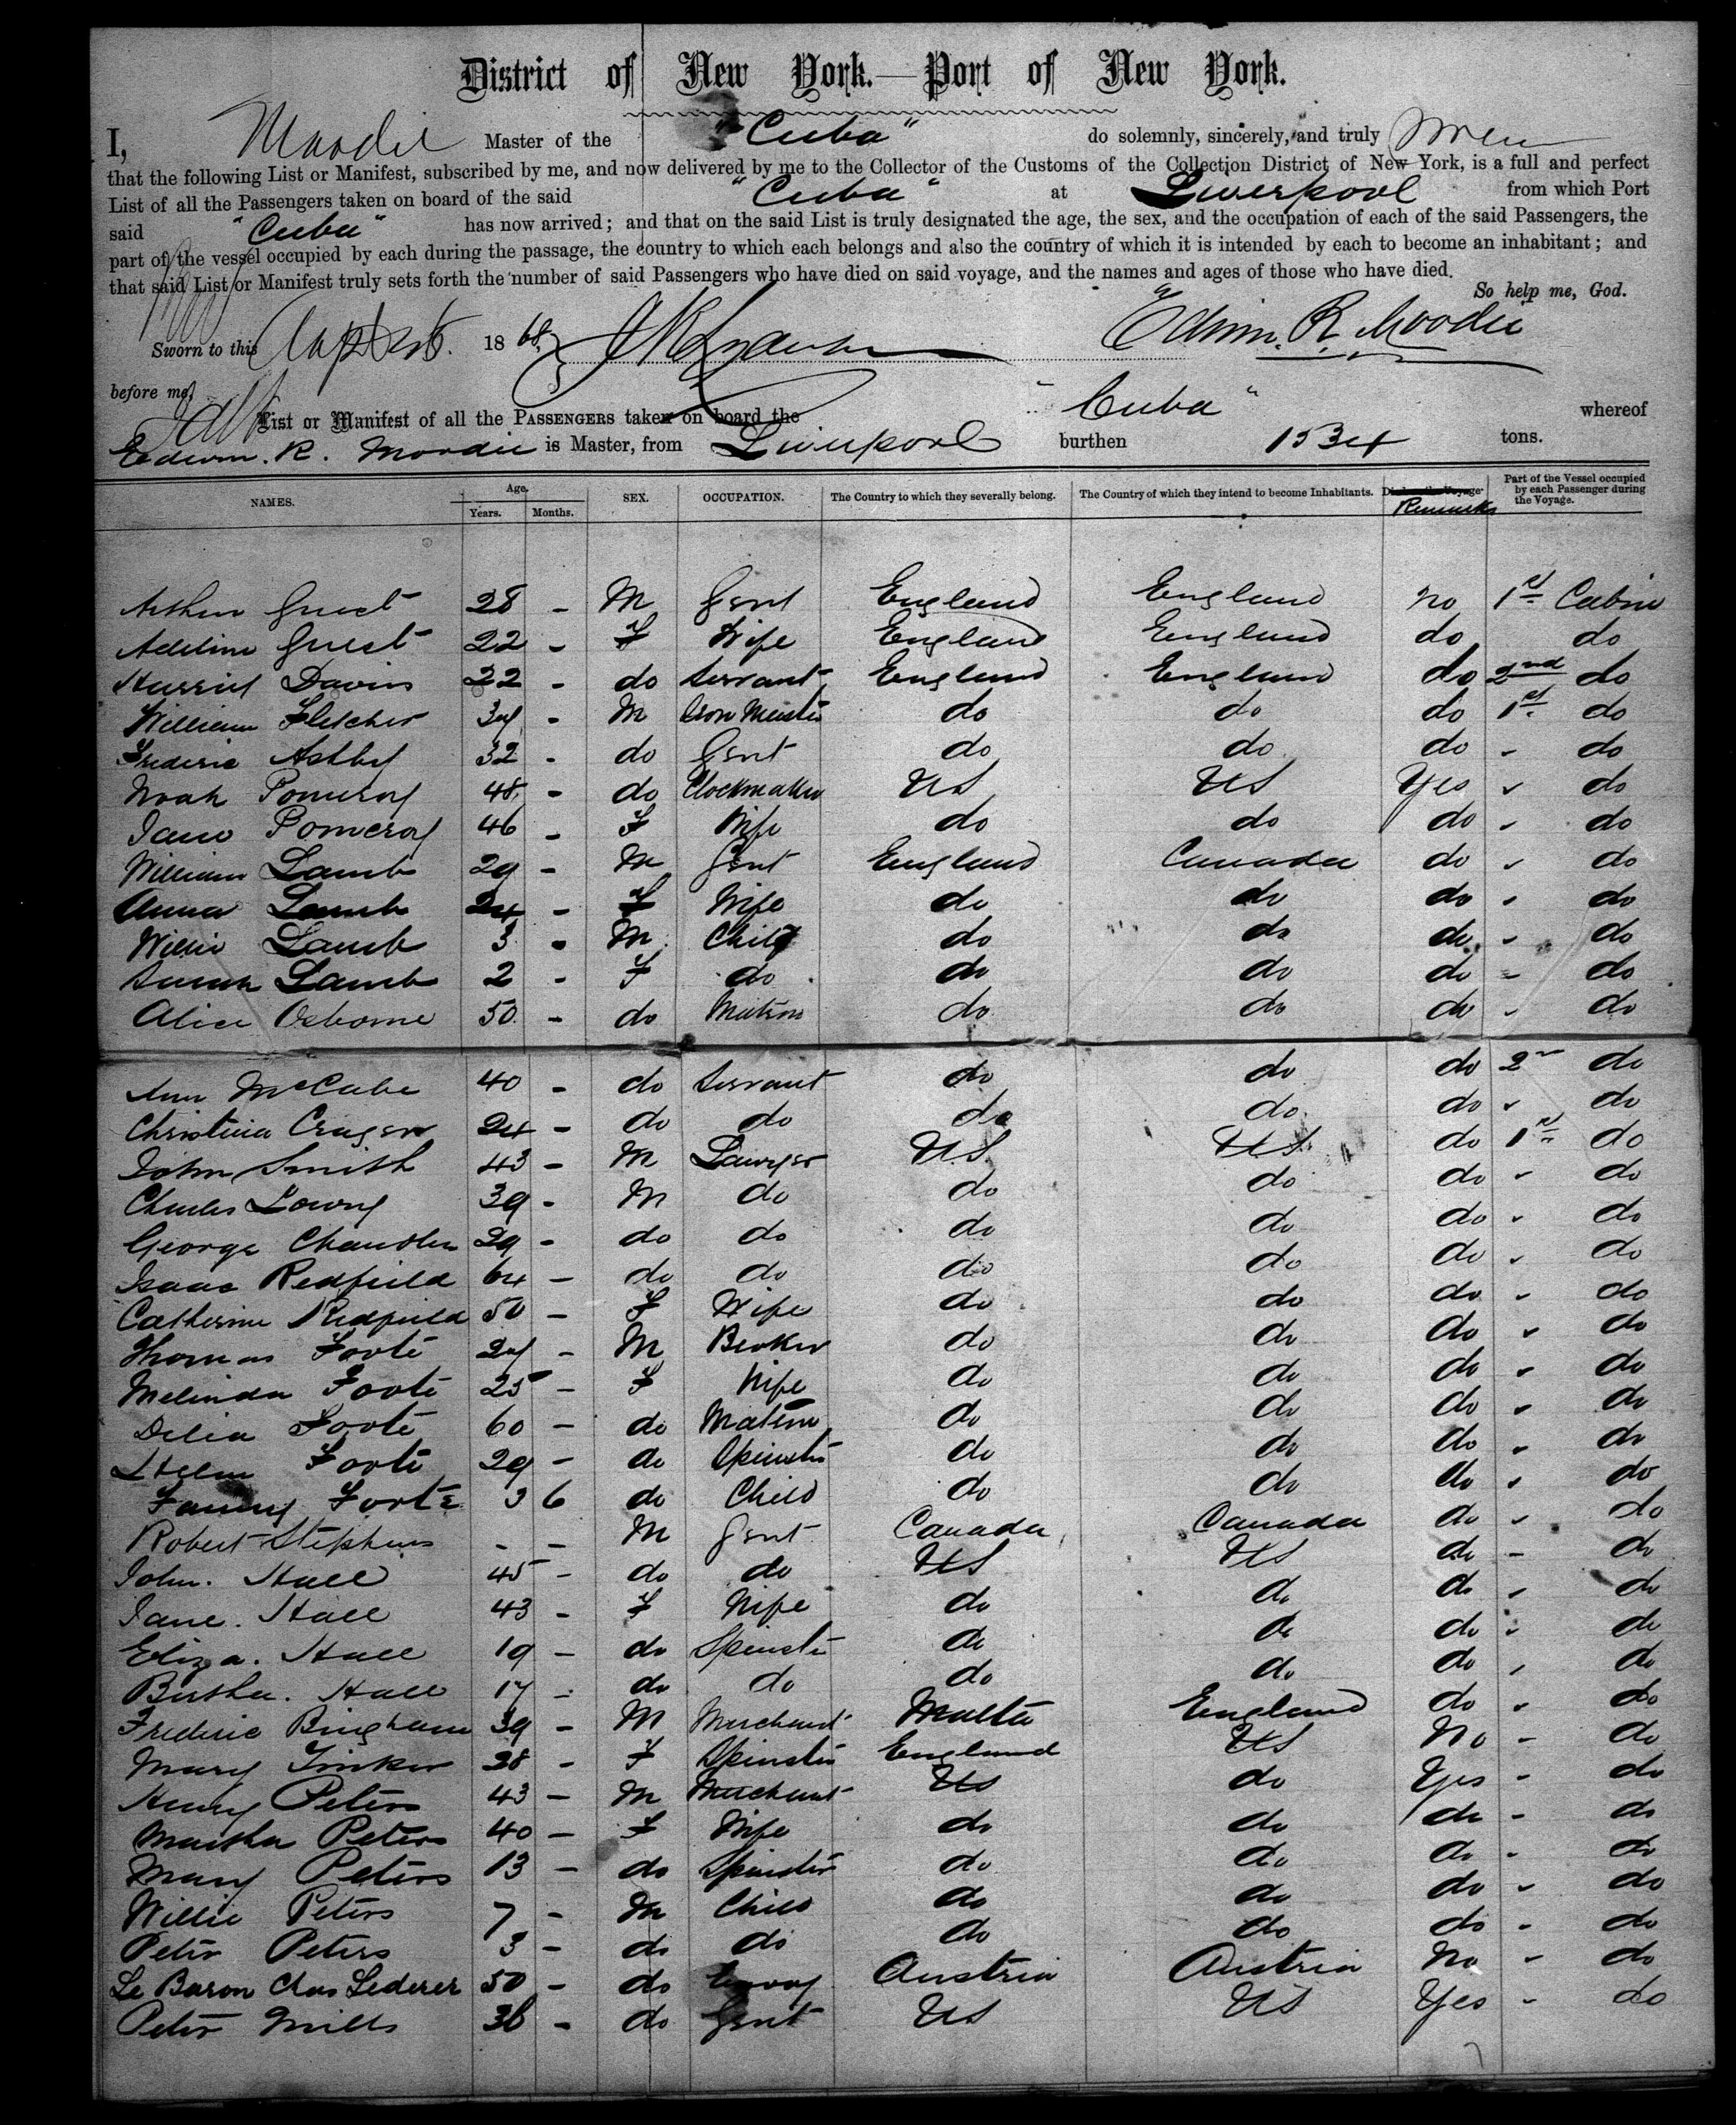 District of New York.—Port of New York.
I, Moodie Master of the "Cuba" do solemnly, sincerely, and truly swear
that the following List or Manifest, subscribed by me, and now delivered by me to the Collector of the Customs of the Collection District of New York, is a full and perfect
List of all the Passengers taken on board of the said "Cuba" at Liverpool from which Port
said "Cuba" has now arrived; and that on the said List is truly designated the age, the sex, and the occupation of each of the said Passengers, the
part of the vessel occupied by each during the passage, the country to which each belongs and also the country of which it is intended by each to become an inhabitant; and
that said List or Manifest truly sets forth the number of said Passengers who have died on said voyage, and the names and ages of those who have died.
So help me, God.
Sworn to this 1868 Edwin. R. Moodie
before me,
List or Manifest of all the PASSENGERS taken on board the "Cuba" whereof
Edwin. R. Moodie is Master, from Liverpool burthen 1534 tons.
NAMES. Age. Years. Months. SEX. OCCUPATION. The Country to which they severally belong. The Country of which they intend to become Inhabitants. Died on the Voyage. Remarks Part of the Vessel occupied by each Passenger during the Voyage.
Arthur Guest 28 - M Gent England England no 1st Cabin
Adeline Guest 22 - F Wife England England do do
Harriet Davis 22 - do Servant England England do 2nd do
William Fletcher 34 - M Iron Master do do do 1st do
Frederic Ashby 32 - do Gent do do do " do
Noah Pomeroy 48 - do Clockmaker US US Yes " do
Jane Pomeroy 46 - F Wife do do do " do
William Lamb 29 - M Gent England Canada do " do
Anna Lamb 24 - F Wife do do do " do
Willie Lamb 3 - M Child do do do " do
Sarah Lamb 2 - F do do do do " do
Alice Osborne 50 - do Matron do do do " do
Ann McCabe 40 - do Servant do do do 2nd do
Christina 24 - do do do do do " do
John Smith 43 - M Lawyer US US do 1st do
Charles Lowry 39 - M do do do do " do
George Chandler 29 - do do do do do " do
Isaac Redfield 64 - do do do do do " do
Catherine Redfield 50 - F Wife do do do " do
Thomas Foote 27 - M do do do " do
Melinda Foote 25 - F Wife do do do " do
Delia Foote 60 - do Matron do do do " do
Foote 29 - do Spinster do do do " do
Fanny Foote 3 6 do Child do do do " do
Robert Stephens - - M Gent Canada Canada do " do
John. Hall 45 - do do US US do - do
Jane. Hall 43 - F Wife do do do " do
Eliza. Hall 19 - do Spinster do do do " do
Bertha. Hall 17 - do do do do do " do
Frederic Bingham 39 - M Merchant Malta England do " do
Mary Tinker 28 - F Spinster England US No - do
Henry Peters 43 - M Merchant US do Yes - do
Martha Peters 40 - F Wife do do do - do
Mary Peters 13 - do Spinster do do do - do
Willie Peters 7 - M Child do do do " do
Peter Peters 3 - do do do do do - do
Le Baron Chas Lederer 50 - do Envoy Austria Austria No - do
Peter Mills 36 - do Gent US US Yes - do